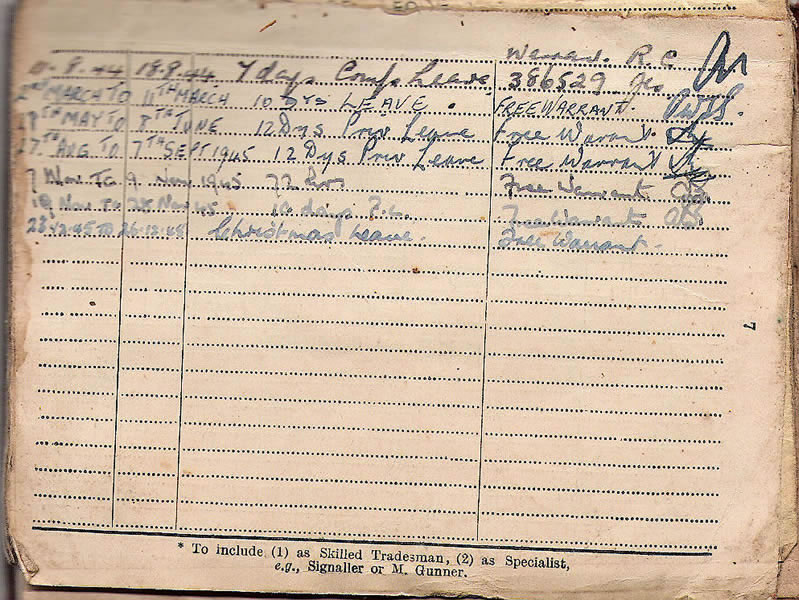 Warran. R.C
8.44 18.8.44 7 days Comp Leave 386529
2nd MARCH TO 11TH MARCH 10 DYS LEAVE. FREE WARRANT.
TH MAY TO 8TH JUNE 12 Dys Priv Leave Free Warrant
27TH AUG TO 7TH SEPT 1945 12 Dys Priv Leave Free Warrant
7 Nov To 9 Nov 1945 72 hrs Free Warrant
Nov To 28 Nov 45 10 days P.L. Free Warrant
23.12.45 TO 26.12.45 Christmas Leave. Free Warrant.
7
* To include (1) as Skilled Tradesman, (2) as Specialist,
e.g., Signaller or M. Gunner.